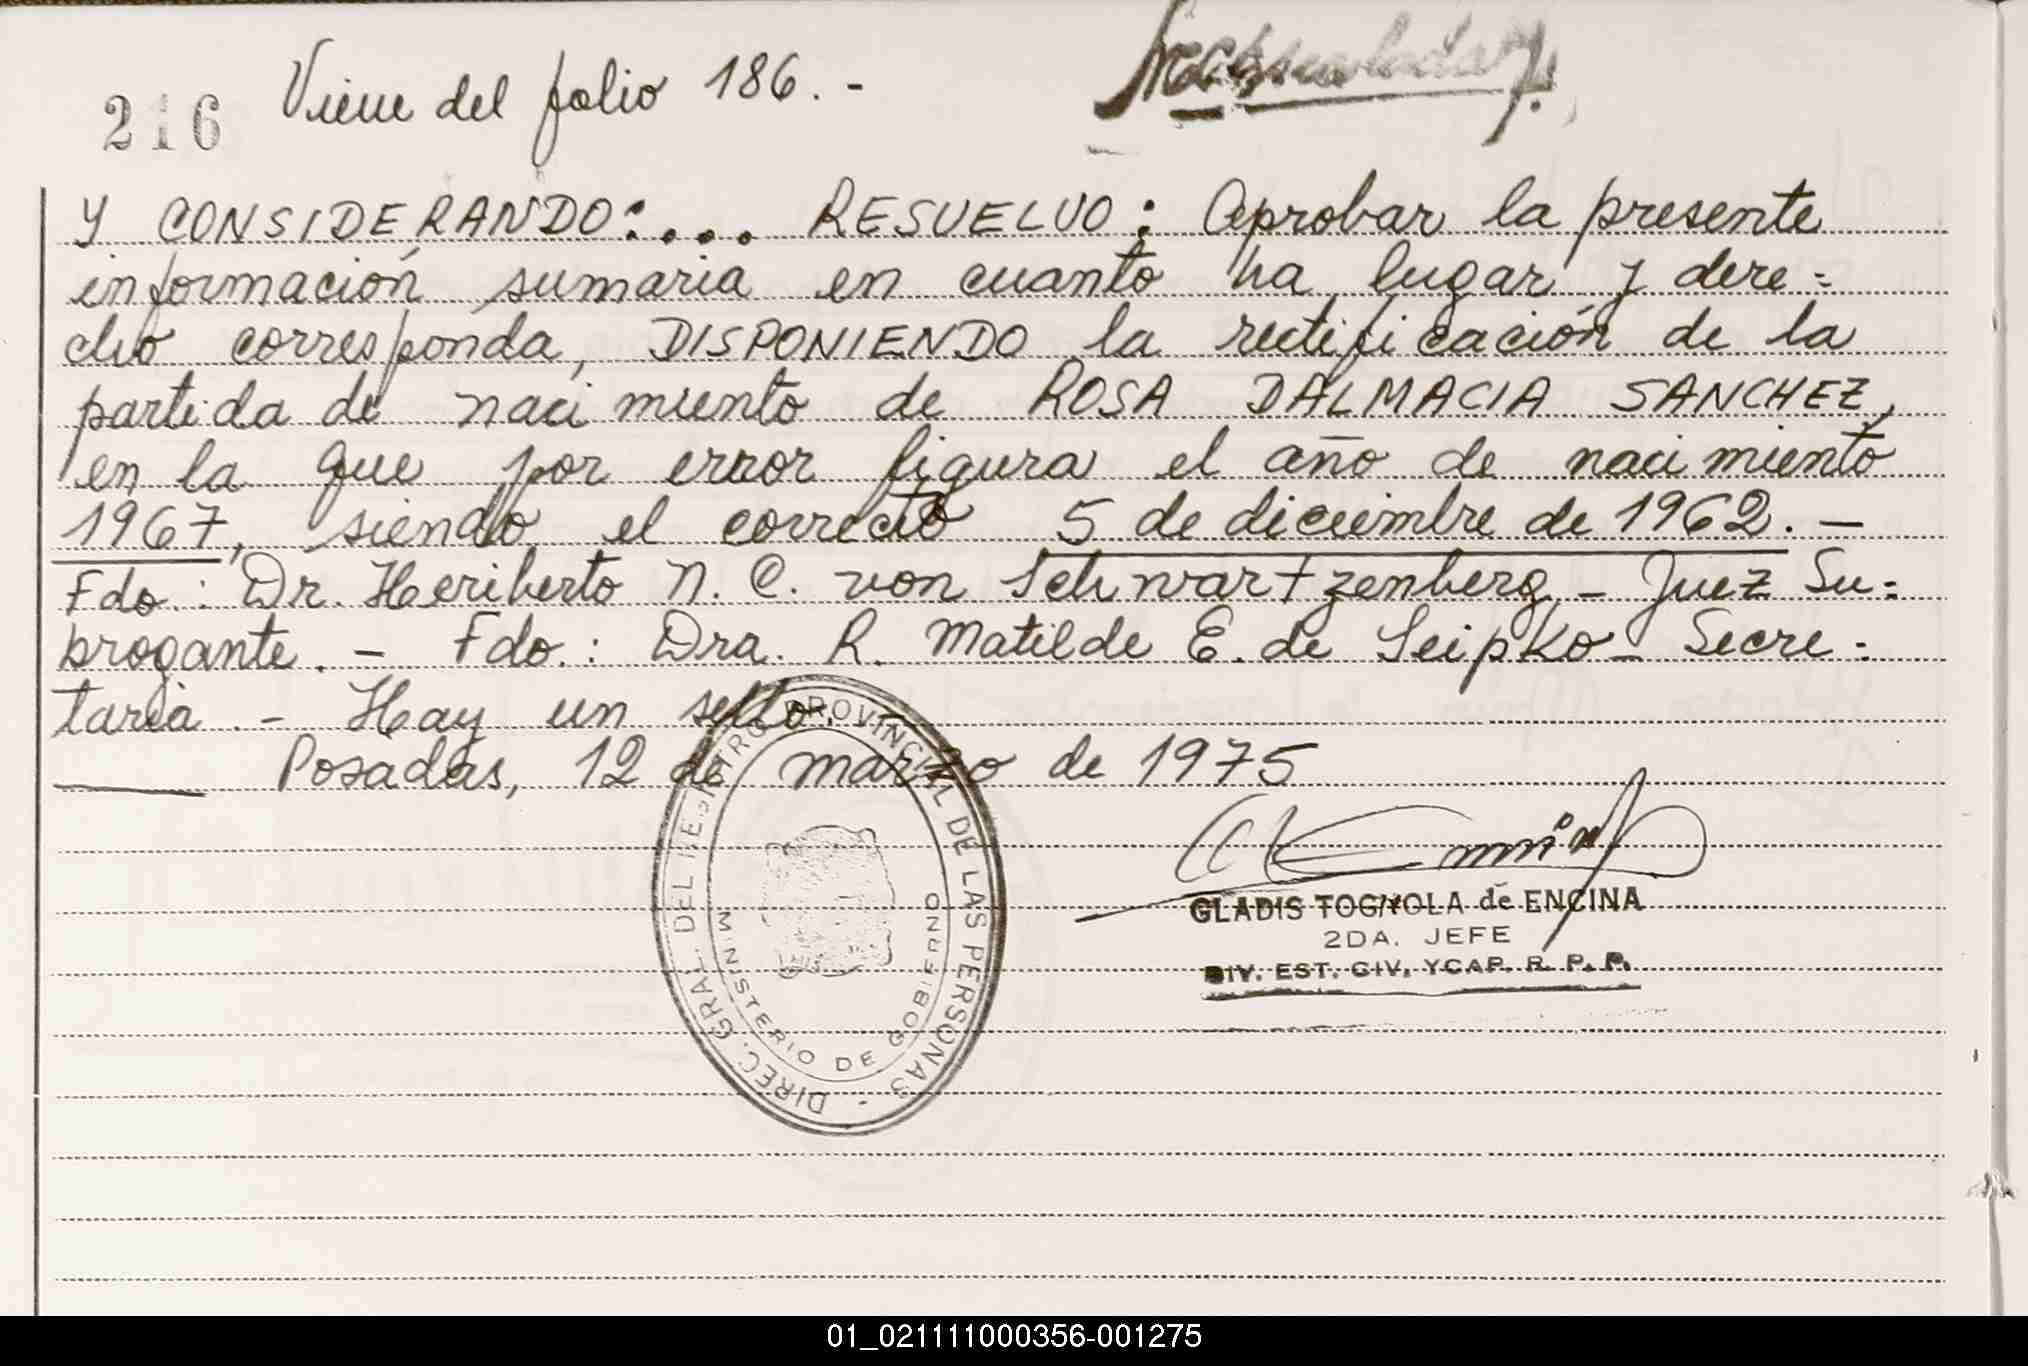 216 Viene del folio 186.-
Y CONSIDERANDO:... RESUELVO: Aprobar la presente
información sumaria en cuanto ha lugar y dere=
cho corresponda, DISPONIENDO la rectificación de la
partida de nacimiento de ROSA DALMACIA SANCHEZ,
en la que por error figura el año de nacimiento
1967, siendo el correcto 5 de diciembre de 1962.-
Fdo.: Dr. Heriberto N. C. von Schwartzenberg - Juez Su=
brogante.- Fdo.: Dra. R. Matilde E. de Seipko - Secre=
taria.- Hay un sello.
Posadas, 12 de marzo de 1975
DIREC. GRAL. DEL REGISTRO PROVINCIAL DE LAS PERSONAS
MINISTERIO DE GOBIERNO
GLADIS TOGNOLA de ENCINA
2DA. JEFE
DIV. EST. CIV. Y CAP. R. P. P.
01_021111000356-001275